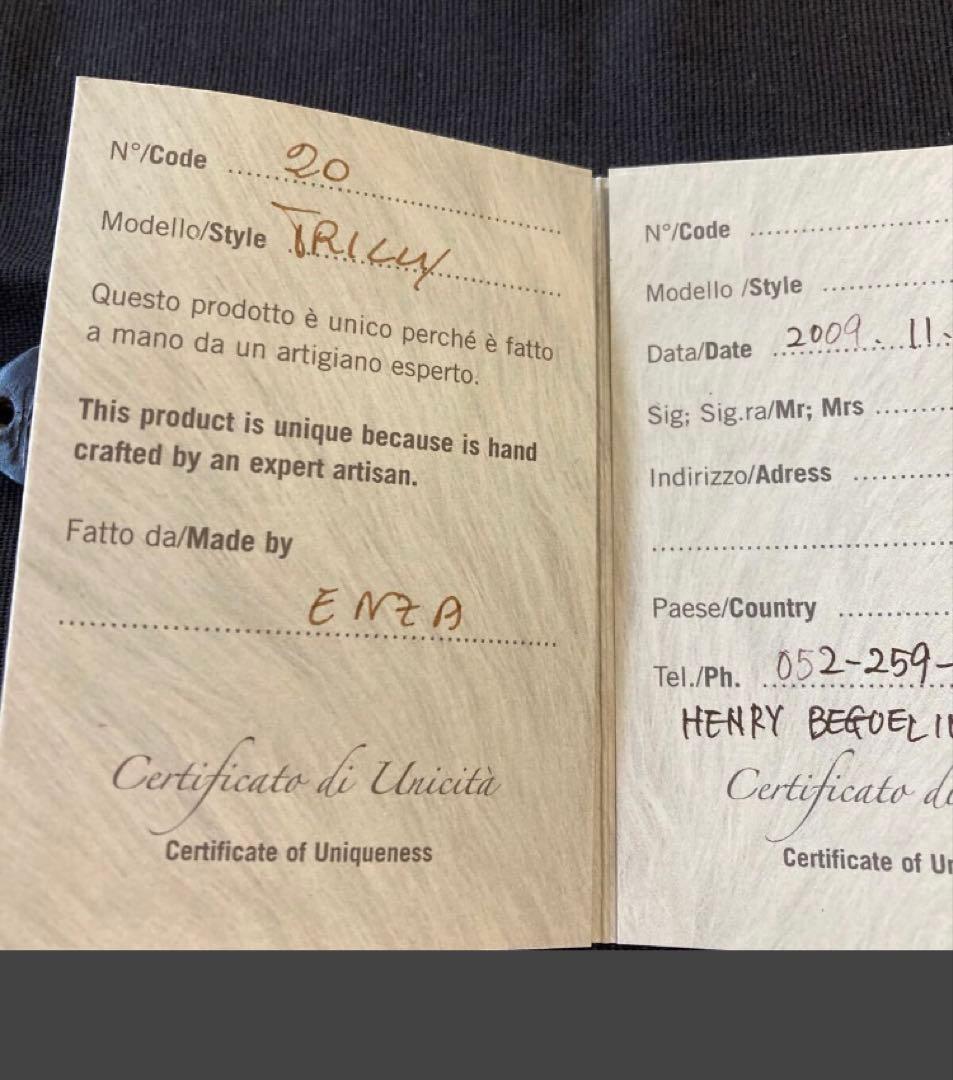 N°/Code 20
Modello/Style TRILLY
Questo prodotto è unico perché è fatto
a mano da un artigiano esperto.
This product is unique because is hand
crafted by an expert artisan.
Fatto da/Made by
ENZA
Certificato di Unicità
Certificate of Uniqueness
N°/Code
Modello /Style
Data/Date 2009. 11.
Sig; Sig.ra/Mr; Mrs
Indirizzo/Adress
Paese/Country
Tel./Ph. 052-259-
HENRY BEGUELI
Certificato di
Certificate of Un